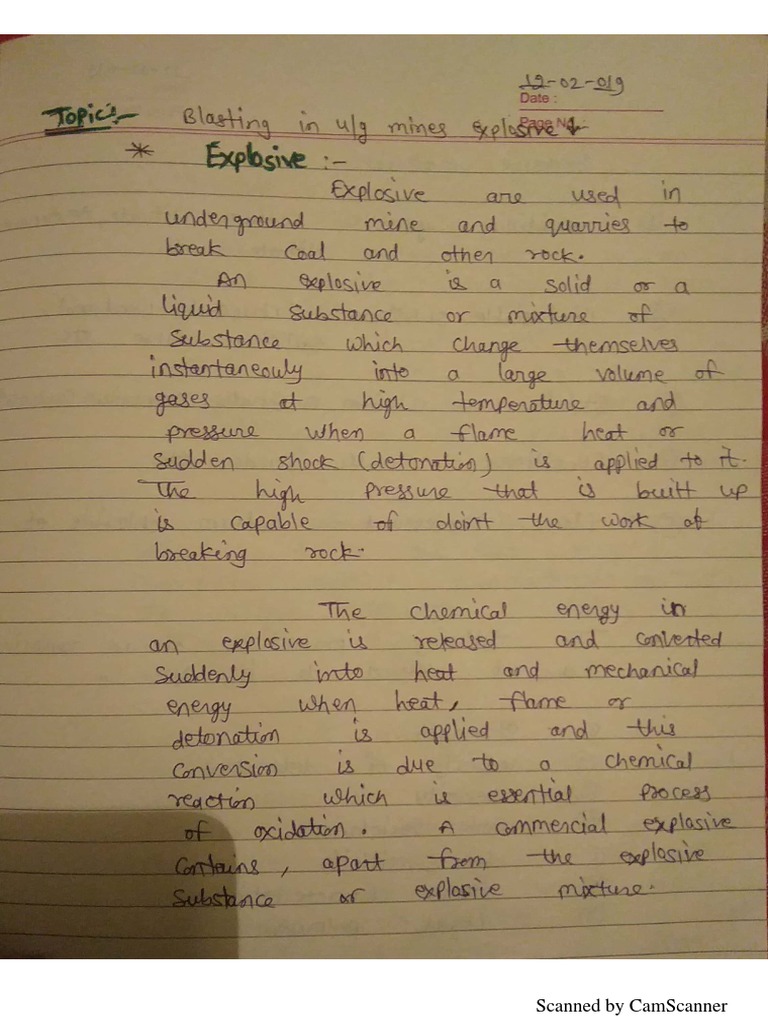 12-02-019
Date :
Topic:- Blasting in u/g mines explosive
Page No. :
* Explosive :-
Explosive are used in
underground mine and quarries to
break coal and other rock.
An explosive is a solid or a
liquid substance or mixture of
substance which change themselves
instantaneouly into a large volume of
gases at high temperature and
pressure when a flame heat or
sudden shock (detonation) is applied to it.
The high pressure that is built up
is capable of doint the work of
breaking rock.
The chemical energy in
an explosive is released and converted
suddenly into heat and mechanical
energy when heat, flame or
detonation is applied and this
conversion is due to a chemical
reaction which is essential process
of oxidation. A commercial explosive
contains, apart from the explosive
substance or explosive mixture.
Scanned by CamScanner